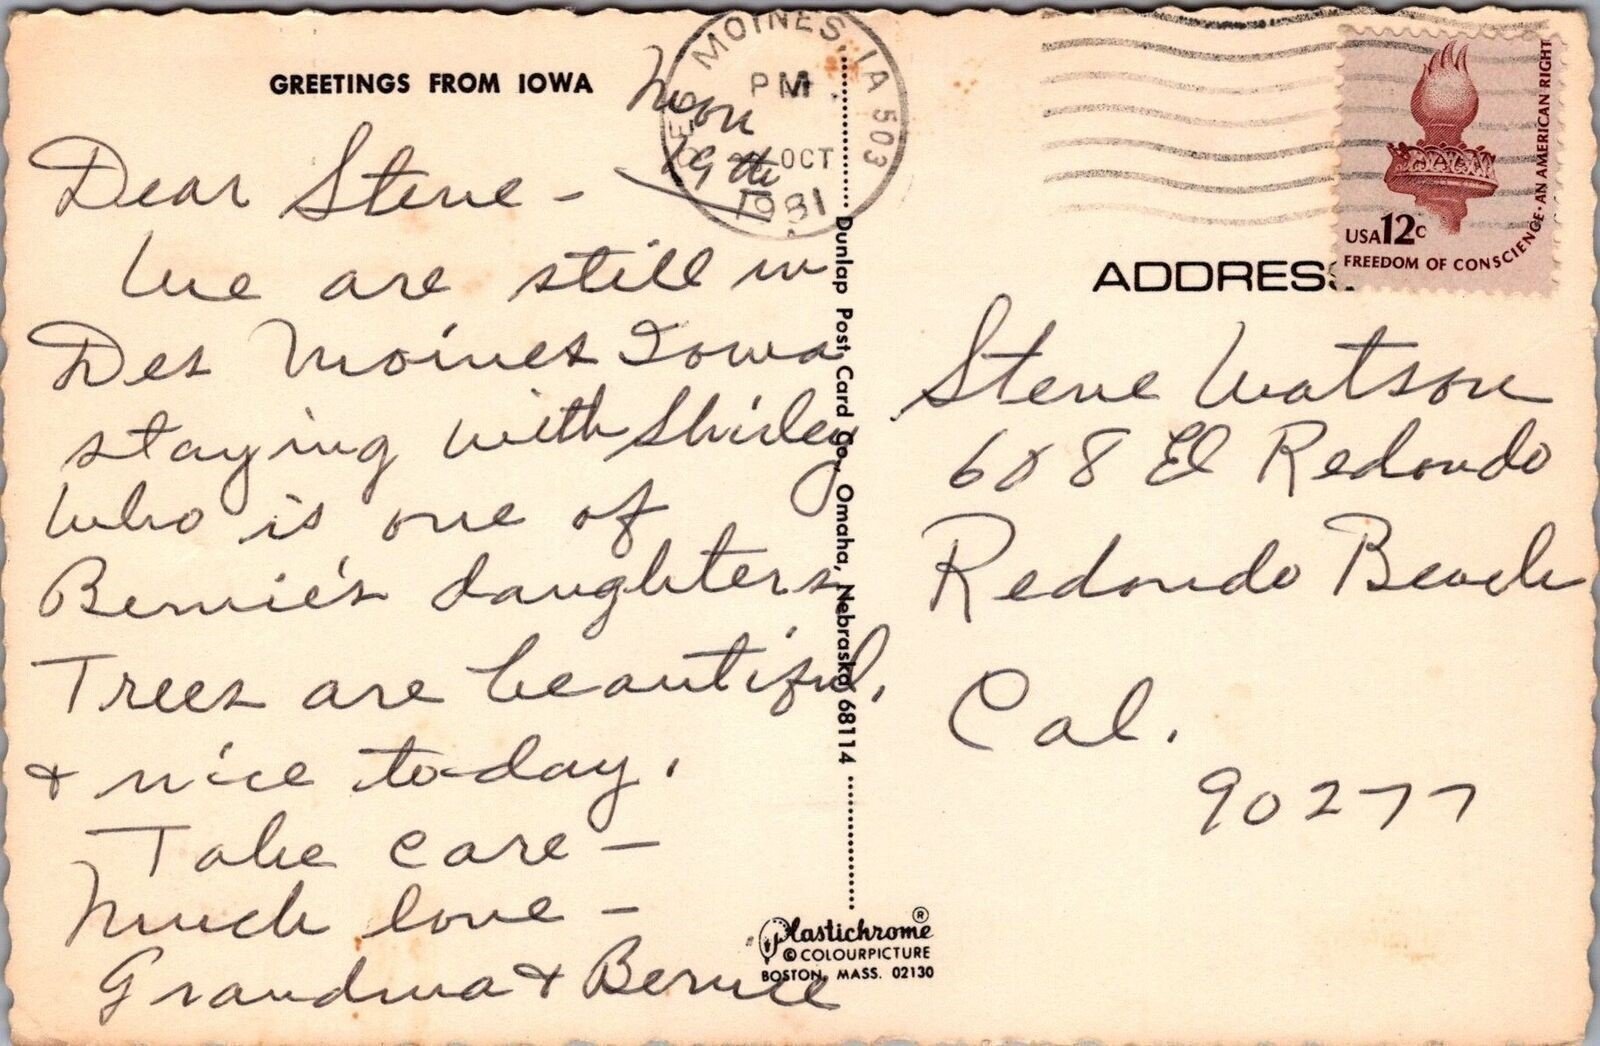 GREETINGS FROM IOWA
Mon
19th
DES MOINES, IA 503
PM
OCT
1981
USA 12c
FREEDOM OF CONSCIENCE · AN AMERICAN RIGHT
Dear Steve -
We are still in
Des Moines Iowa
staying with Shirley
who is one of
Bernie's daughters
Trees are beautiful,
& nice to-day.
Take care -
Much love -
Grandma & Bernice
Dunlap Post Card Co., Omaha, Nebraska 68114
Plastichrome ®
© COLOURPICTURE
BOSTON, MASS. 02130
ADDRESS
Steve Watson
608 El Redondo
Redondo Beach
Cal.
90277